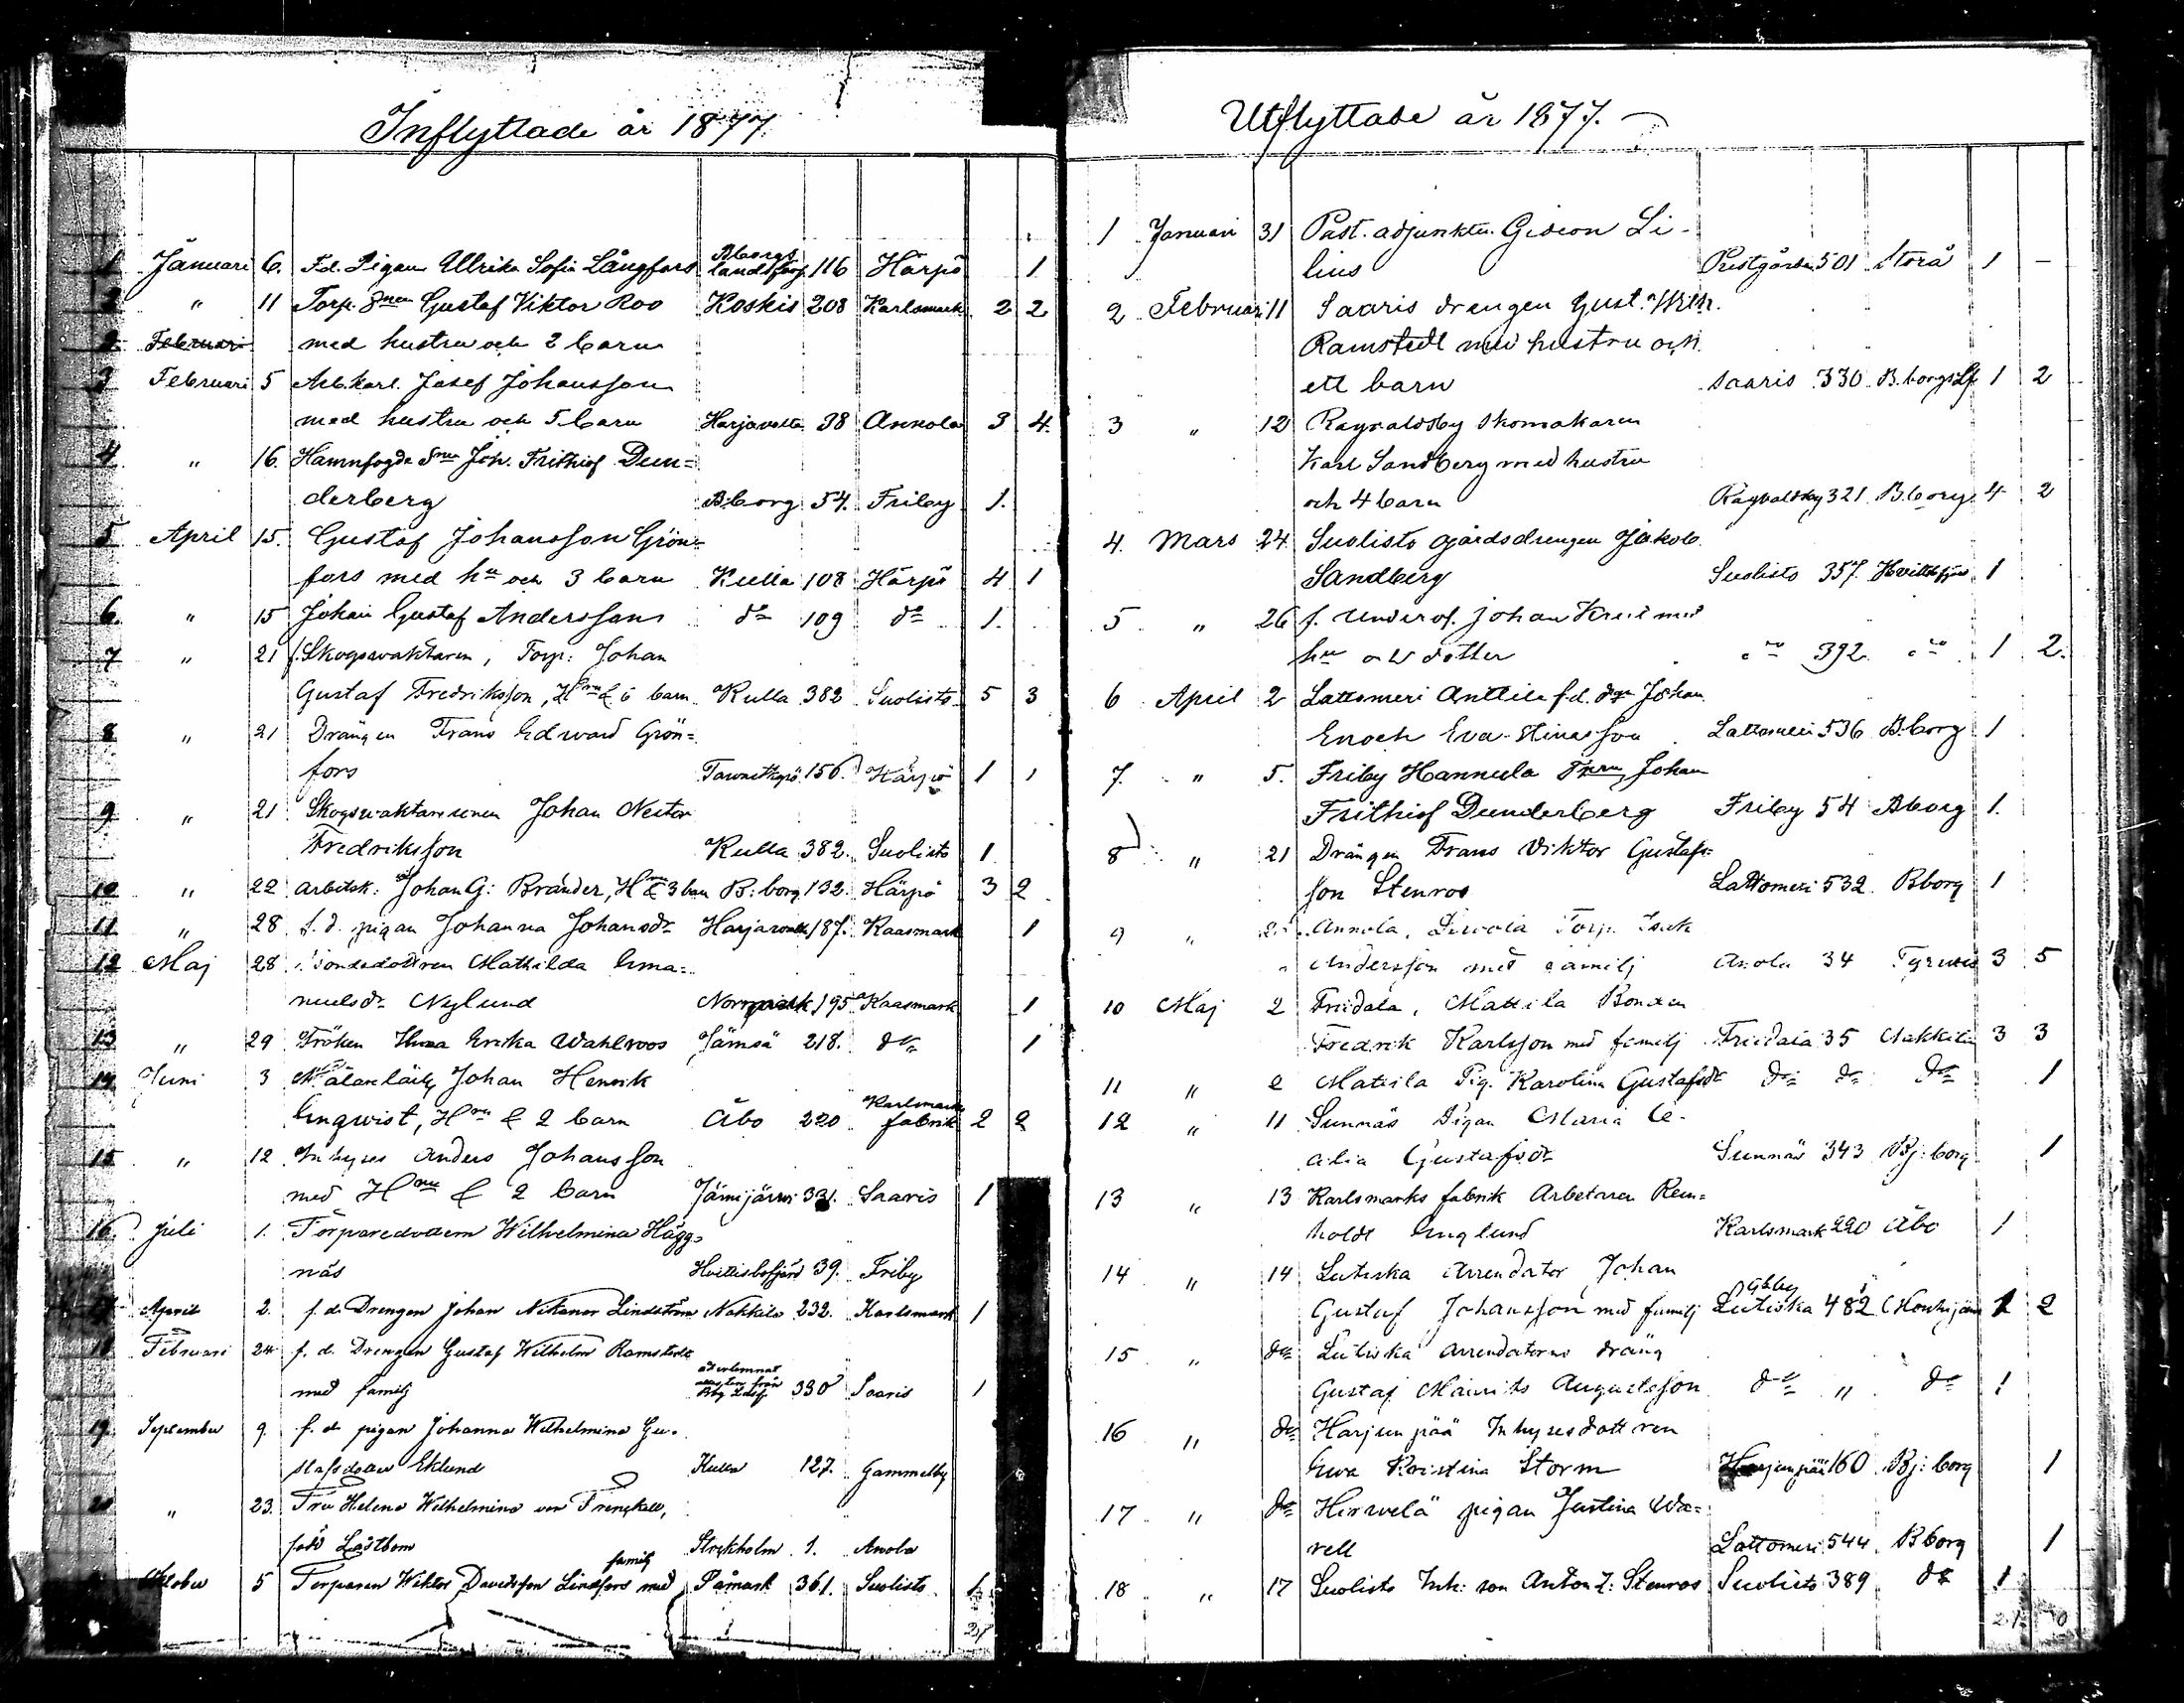 Inflyttade år 1877.
1 Januari 6. F.d. Pigan Ullrika Sofia Långfors B:borgs landsförs. 116 Härpö 1
2 " 11 Torp. Snen Gustaf Viktor Roo Koskis 208 Karlsmark 2 2
2 Februari med hustru och 2 barn
3 Februari 5 Arb.karl. Josef Johansson
med hustru och 5 barn Harjavalta 38 Annola 3 4
4 " 16. Hamnfogde Snen Joh. Frithiof Dun=
derberg B:borg 54. Friby 1.
5 April 15. Gustaf Johansson Grön=
fors med hu och 3 barn Kulla 108 Härpö 4 1
6. " 15 Johan Gustaf Andersson do 109 do 1.
7 " 21 f. Skogsvaktaren, Torp: Johan
Gustaf Fredriksson, Hru & 6 barn Kulla 382 Suolisto 5 3
8 " 21 Drängen Frans Edvard Grön=
fors 156. Härpö 1
9 " 21 Skogsvaktaresonen Johan Nestor
Fredriksson Kulla 382. Suolisto 1
10 " 22 arbetsk: Johan G: Brander, Hru & 3 barn B:borg 132. Härpö 3 2
11 " 28 f.d. pigan Johanna Johansdr Harjavalta 187. Kaasmark 1
12 Maj 28 Bondedottren Mathilda Ema=
nuelsdr Nylund Norrmark 195 Kaasmark 1
13 " 29 Fröken Erika Wahlroos Jämsä 218. do 1
14 Juni 3 Målarelärl. Johan Henrik
Engvist, Hru & 2 barn Åbo 220 Karlsmarks fabrik 2 2
15 " 12 Inhyses Anders Johansson
med Hru & 2 barn Jämijärvi 331. Saaris 1
16. Juli 1. Torparedottern Wilhelmina Hägg=
näs Hvittisbofjärd 39. Friby
April 2. f.d. Drengen Johan Nikanor Lindström Nakkila 232. Karlsmark 1
18 Februari 24 f.d. Drengen Gustaf Wilhelm Ramstedt
med familj 330 Saaris 1
19 September 9. f.d. pigan Johanna Wilhelmina Gu=
stafsdotter Eklund Kulla 127. Gammelby
" 23. Fru Helena Wilhelmina von Frenckell,
född Lästbom Stockholm 1. Anola
Oktober 5 Torparen Viktor Davidsson Lindfors med familj Påmark 361. Suolisto
Utflyttade år 1877.
1 Januari 31 Past. adjunkten Gideon Li-
lius Prestgården 501 Storå 1 -
2 Februari 11 Saaris drengen Gust. Wilh.
Ramstedt med hustru och
ett barn Saaris 330 B.borgs Lf 1 2
3 " 12 Ragvaldsby skomakaren
Karl Sandberg med hustru
och 4 barn Ragvaldsby 321 B.borg. 4 2
4. Mars 24 Suolisto gårdsdrengen Jakob
Sandberg Suolisto 357 1
5 " 26 f. Underof. Johan med
hu och dotter do 392 do 1 2.
6 April 2 Lattomeri Anttila f.d. Johan
Enoch Eva-Stinasson Lattomeri 536 B:borg 1
7. " 5. Friby Hannula Johan
Frithiof Dunderberg Friby 54 B:borg 1.
8 " 21 Drängen Frans Viktor Gustafs=
son Stenros Lattomeri 532 B:borg 1
9 " Annola, Torp. Isak
" Andersson med familj Anola 34 Tyrvis 3 5
10 Maj 2 Friidala, Mattila Bonden
Fredrik Karlsson med familj Friidala 35 Nakkila 3 3
11 " 2 Mattila Pig. Karolina Gustafsdr do do do 1
12 " 11 Sunnäs Pigan Maria Ce-
cilia Gustafsdr Sunnäs 343 Bj:borg 1
13 " 13 Karlsmarks fabrik Arbetaren Rein=
holdt Englund Karlsmark 220 Åbo 1
14 " 14 Lutiska Arrendator Johan
Gustaf Johansson med familj Lutiska 482 1 2
15 " do Lutiska arrendatorns dräng
Gustaf Maurits Augustsson do " do 1
16 " do Harjunpää Inhysesdottren
Ewa Kristina Storm Harjunpää 160 Bj:borg 1
17 " do Hirvelä pigan Justina Wa=
rell Lattomeri 544 B:borg 1
18 " 17 Suolisto Inh: son Anton Z: Stenros Suolisto 389 do 1